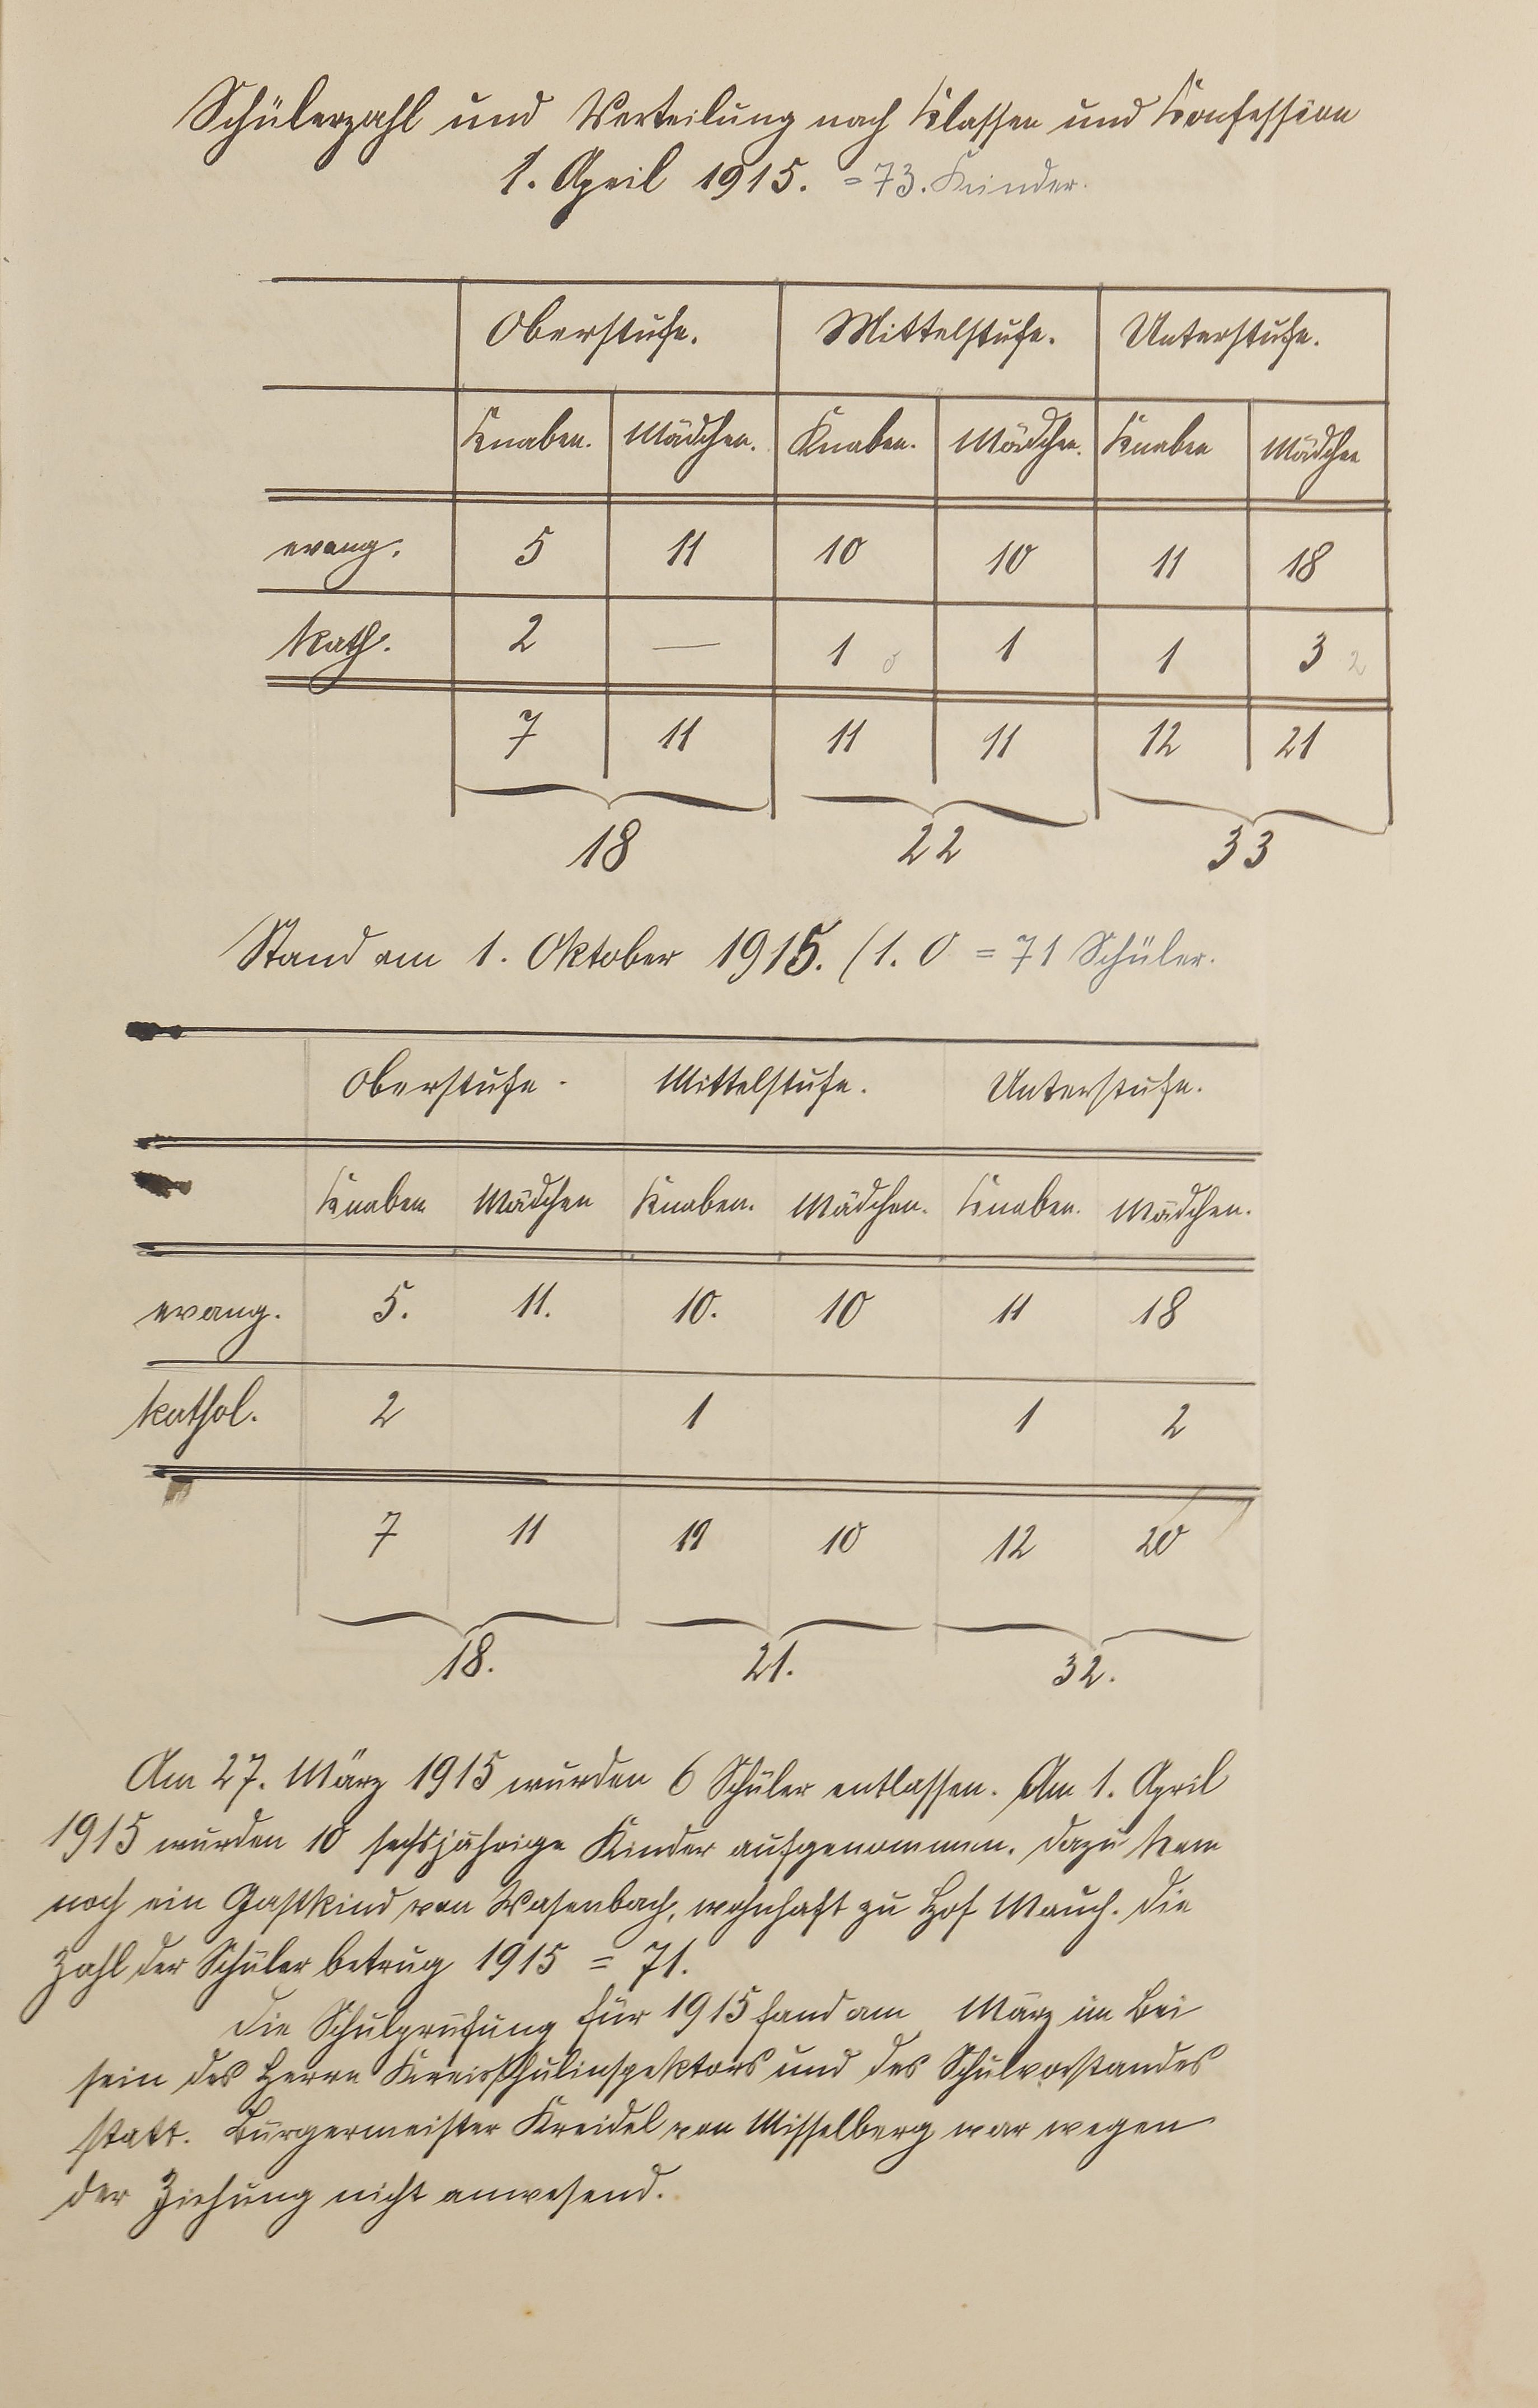 Schülerzahl und Verteilung nach Klassen und Konfession
1. April 1915. = 73. Kinder.
Oberstufe. Mittelstufe. Unterstufe.
Knaben. Mädchen. Knaben. Mädchen. Knaben Mädchen
evang. 5 11 10 10 11 18
kath. 2 — 1 0 1 1 3 2
7 11 11 11 12 21
18 22 33
Stand am 1. Oktober 1915. (1. O = 71 Schüler.
Oberstufe. Mittelstufe. Unterstufe.
Knaben Mädchen Knaben. Mädchen. Knaben. Mädchen.
evang. 5. 11. 10. 10 11 18
kathol. 2 1 1 2
7 11 11 10 12 20
18. 21. 32.
Am 27. März 1915 wurden 6 Schüler entlassen. Am 1. April
1915 wurden 10 sechsjährige Kinder aufgenommen. Dazu kam
noch ein Gastkind von Wasenbach, wohnhaft zu Hof Mauch. Die
Zahl der Schüler betrug 1915 = 71.
Die Schulprüfung für 1915 fand am März im Bei
sein des Herrn Kreisschulinspektors und des Schulvorstandes
statt. Bürgermeister Kreidel von Misselberg war wegen
der Ziehung nicht anwesend.